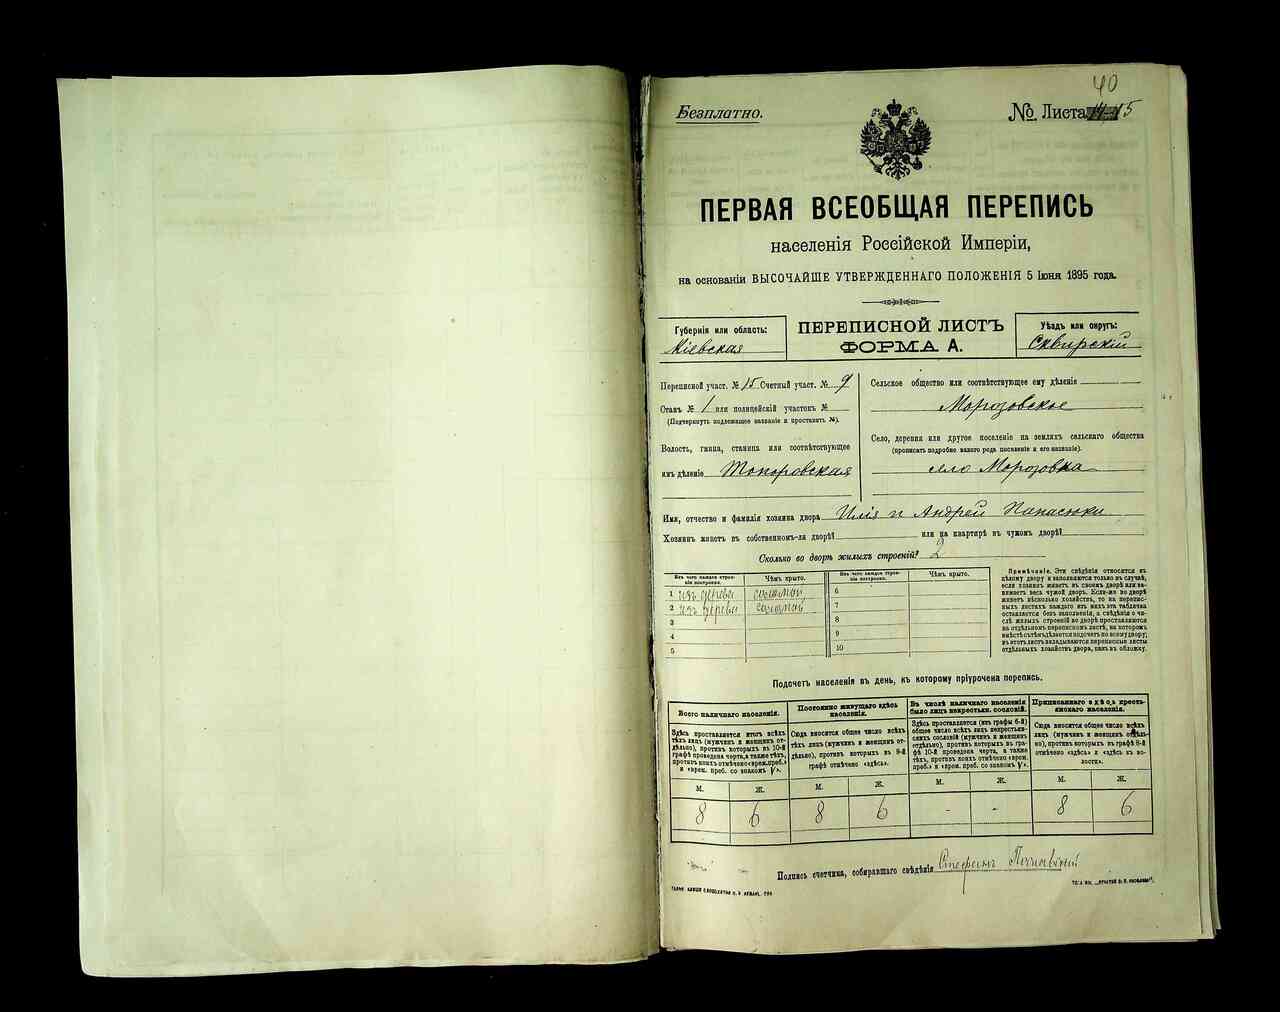 40
Безплатно.
№ Листа 15
ПЕРВАЯ ВСЕОБЩАЯ ПЕРЕПИСЬ
населенія Россійской Имперіи,
на основаніи ВЫСОЧАЙШЕ УТВЕРЖДЕННАГО ПОЛОЖЕНІЯ 5 Іюня 1895 года.
Губернія или область:
Кіевская
ПЕРЕПИСНОЙ ЛИСТЪ
ФОРМА А.
Уѣздъ или округъ:
Сквирскій
Переписной участ. № 15 Счетный участ. № 9
Станъ № 1 или полицейскій участокъ №
(Подчеркнуть подлежащее названіе и проставить №).
Волость, гмина, станица или соотвѣтствующее
имъ дѣленіе Топоровская
Сельское общество или соотвѣтствующее ему дѣленіе
Морозовское
Село, деревня или другое поселеніе на земляхъ сельскаго общества
(прописать подробно какого рода поселеніе и его названіе).
село Морозовка
Имя, отчество и фамилія хозяина двора Илія и Андрей Папасюки
Хозяинъ живетъ въ собственномъ-ли дворѣ? или на квартирѣ въ чужомъ дворѣ?
Сколько во дворѣ жилыхъ строеній? 2
Изъ чего каждое строеніе построено.
Чѣмъ крыто.
Изъ чего каждое строеніе построено.
Чѣмъ крыто.
1 изъ дерева соломой
2 изъ дерева соломой
3
4
5
6
7
8
9
10
Примѣчаніе. Эти свѣдѣнія относятся къ
цѣлому двору и заполняются только въ случаѣ,
если хозяинъ живетъ въ своемъ дворѣ или занимаетъ
весь чужой дворъ. Если-же во дворѣ
живетъ нѣсколько хозяйствъ, то на переписныхъ
листахъ каждаго изъ нихъ эта табличка
оставляется безъ заполненія, а свѣдѣнія о числѣ
жилыхъ строеній во дворѣ проставляются
на отдѣльномъ переписномъ листѣ, на которомъ
вмѣстѣ съ тѣмъ дѣлается подсчетъ по всему двору;
въ этотъ листъ вкладываются переписные листы
отдѣльныхъ хозяйствъ двора, какъ въ обложку.
Подсчетъ населенія въ день, къ которому пріурочена перепись.
Всего наличнаго населенія.
Здѣсь проставляется итогъ всѣхъ
тѣхъ лицъ (мужчинъ и женщинъ отдѣльно),
противъ которыхъ въ 10-й
графѣ проведена черта, а также тѣхъ,
противъ коихъ отмѣчено «врем. преб.»
и «врем. преб. со знакомъ V».
Постоянно живущаго здѣсь
населенія.
Сюда вносится общее число всѣхъ
тѣхъ лицъ (мужчинъ и женщинъ отдѣльно),
противъ которыхъ въ 9-й
графѣ отмѣчено «здѣсь».
Въ числѣ наличнаго населенія
было лицъ некрестьян. сословій.
Здѣсь проставляется (изъ графы 6-й)
общее число всѣхъ лицъ некрестьянскихъ
сословій (мужчинъ и женщинъ
отдѣльно), противъ которыхъ въ графѣ
10-й проведена черта, а также
тѣхъ, противъ коихъ отмѣчено «врем.
преб.» и «врем. преб. со знакомъ V».
Приписаннаго здѣсь крестьянскаго
населенія.
Сюда вносится общее число всѣхъ
лицъ (мужчинъ и женщинъ отдѣльно),
противъ которыхъ въ графѣ 8-й
отмѣчено «здѣсь» и «здѣсь въ волости».
М. Ж. М. Ж. М. Ж. М. Ж.
8 6 8 6 - - 8 6
Подпись счетчика, собиравшаго свѣдѣнія Стефанъ